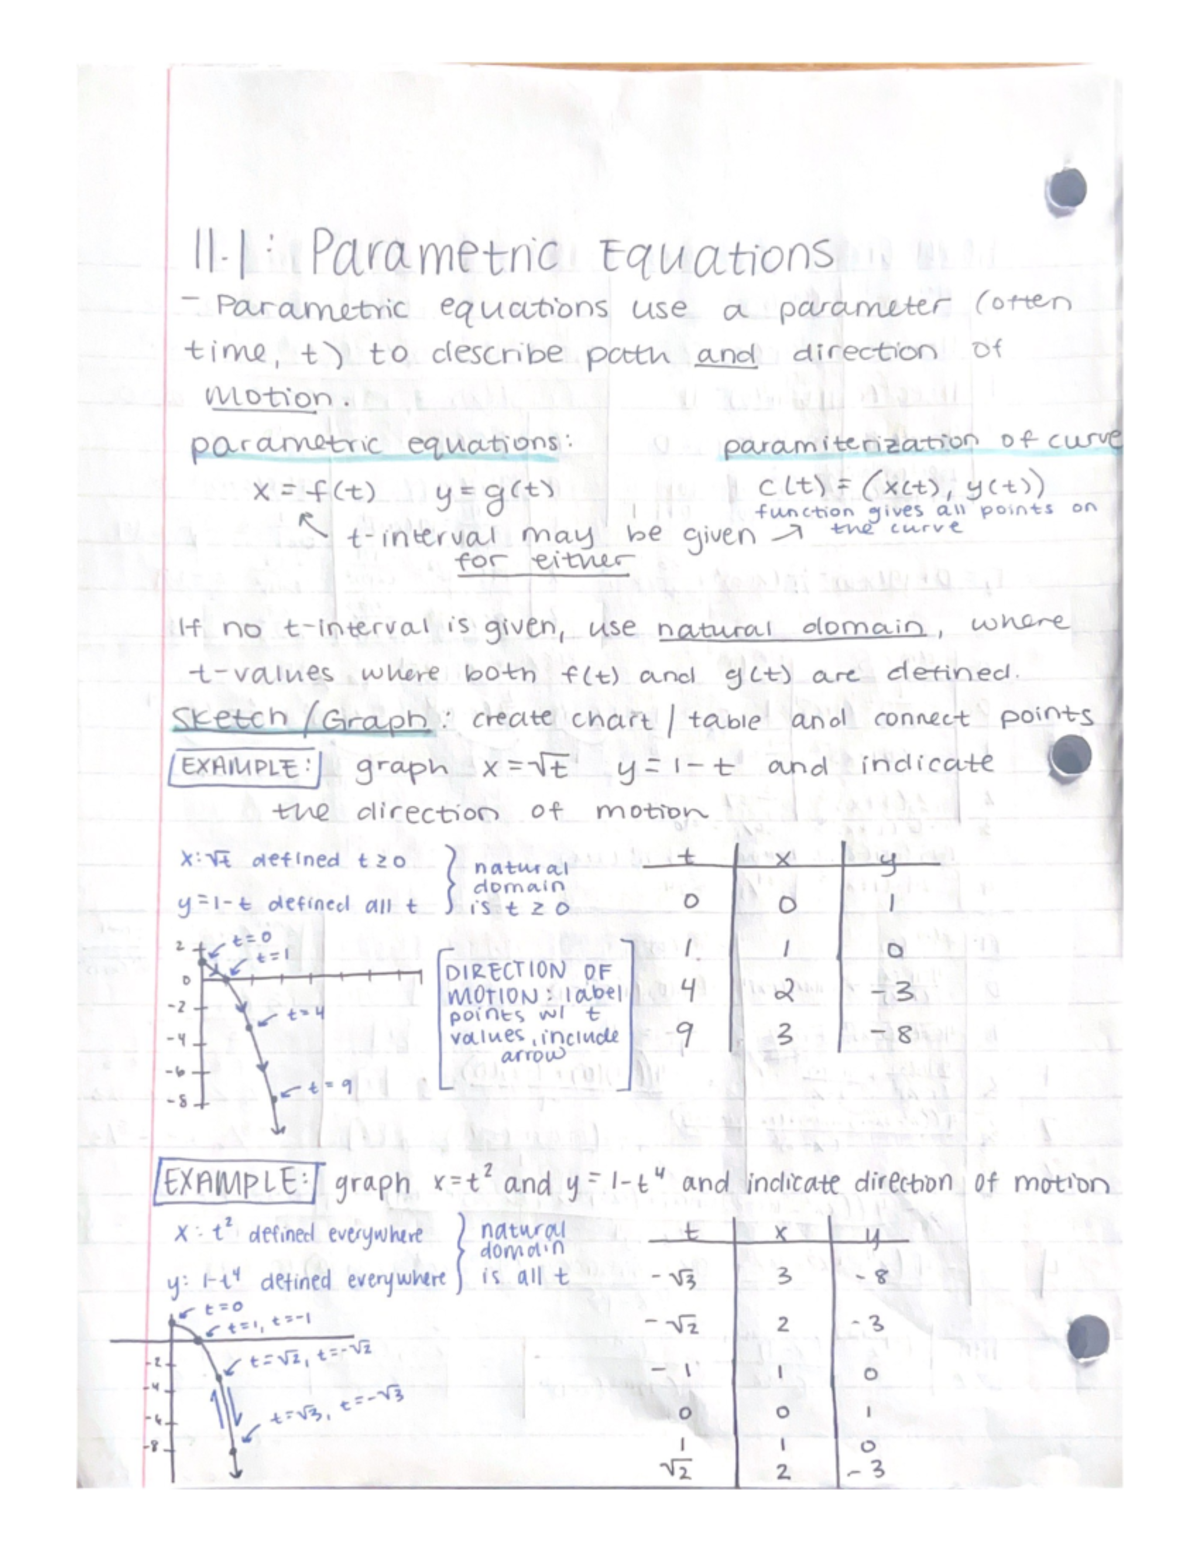 11.1: Parametric Equations
- Parametric equations use a parameter (often
time, t) to describe path and direction of
motion.
parametric equations:
paramiterization of curve
x = f(t) y = g(t)
c(t) = (x(t), y(t))
function gives all points on
the curve
t-interval may be given
for either
If no t-interval is given, use natural domain, where
t-values where both f(t) and g(t) are defined.
Sketch/Graph: create chart / table and connect points
EXAMPLE: graph x = √t y = 1 - t and indicate
the direction of motion
x: √t defined t ≥ 0
y = 1 - t defined all t
natural
domain
is t ≥ 0
t x y
0 0 1
1 1 0
4 2 -3
9 3 -8
2
0
-2
-4
-6
-8
t=0
t=1
t=4
t=9
DIRECTION OF
MOTION: label
points w/ t
values, include
arrow
EXAMPLE: graph x=t² and y = 1-t⁴ and indicate direction of motion
x: t² defined everywhere
y: 1-t⁴ defined everywhere
natural
domain
is all t
t x y
-√3 3 -8
-√2 2 -3
-1 1 0
0 0 1
1 1 0
√2 2 -3
t=0
t=1, t=-1
t=√2, t=-√2
t=√3, t=-√3
-2
-4
-6
-8